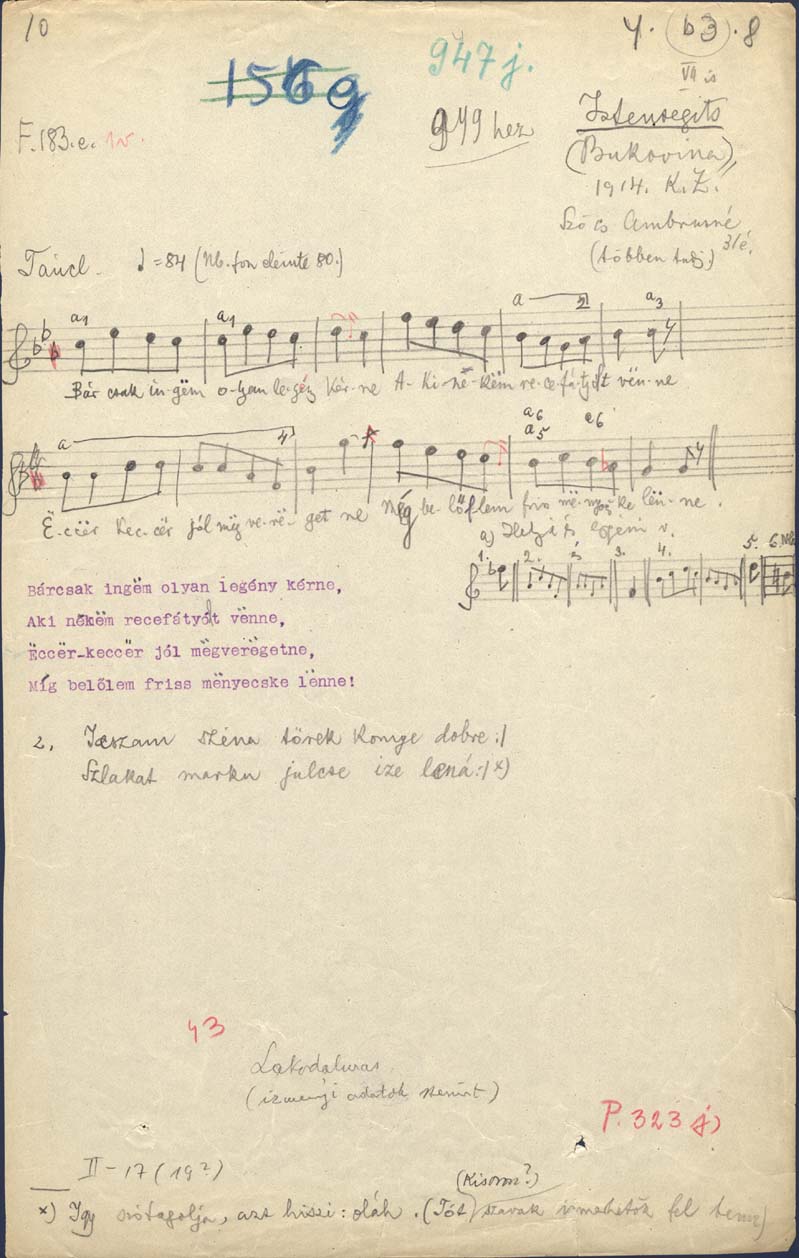 10
4. b3. 8
156 g
947 j.
VII is
979 hez
F.183.e.
Istensegits
(Bukovina)
1914. K.Z.
Szőcs Ambrusné
(többen tudj.) 31é.
Táncl. ♩ = 84 (Nb. fon eleinte 80.)
a1 a1 a a3
Bár csak in-gëm o-lyan le-gén kér-ne A-ki-në-këm re-ce-fá-tyolt vën-ne
a a6 a5 e6
Ë-ccër kec-cër jól mëg ve-rë-get ne Még be-lőllem friss më-nyecs-ke lën-ne.
a)
1. 2. 3. 4. 5. 6.
Bárcsak ingëm olyan legény kérne,
Aki nëkëm recefátyólt vënne,
Ëccër-keccër jól mëgverëgetne,
Míg belőlem friss mënyecske lënne!
2. széna törek komge dobre :/
Szlakat marku julcse ize lená :/ x)
43
Lakodalmas
(izményi adatok szerint)
P. 323 j)
II - 17 (19?)
(Kisoroa?)
x) Igy szótagolja, azt hiszi: oláh. (Tót szavak ismerhetők fel benne)